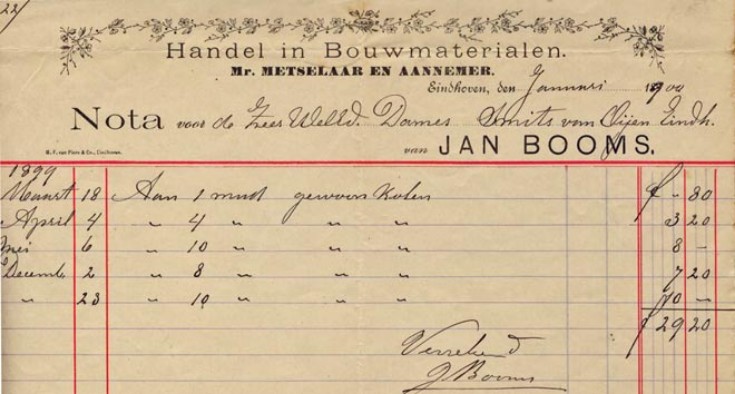 22/
Handel in Bouwmaterialen.
Mr. METSELAAR EN AANNEMER.
Eindhoven, den Januari 1900
Nota voor de Zeer WelEd. Dames Smits van Oijen Eindh.
van JAN BOOMS.
1899
Maart 18 Aan 1 mud gewoon kolen f " 80
April 4 " 4 " " " 3 20
Mei 6 " 10 " " " 8 -
Decemb. 2 " 8 " " " 7 20
" 23 " 10 " " " 10 "
f 29 20
Verrekend
J Booms